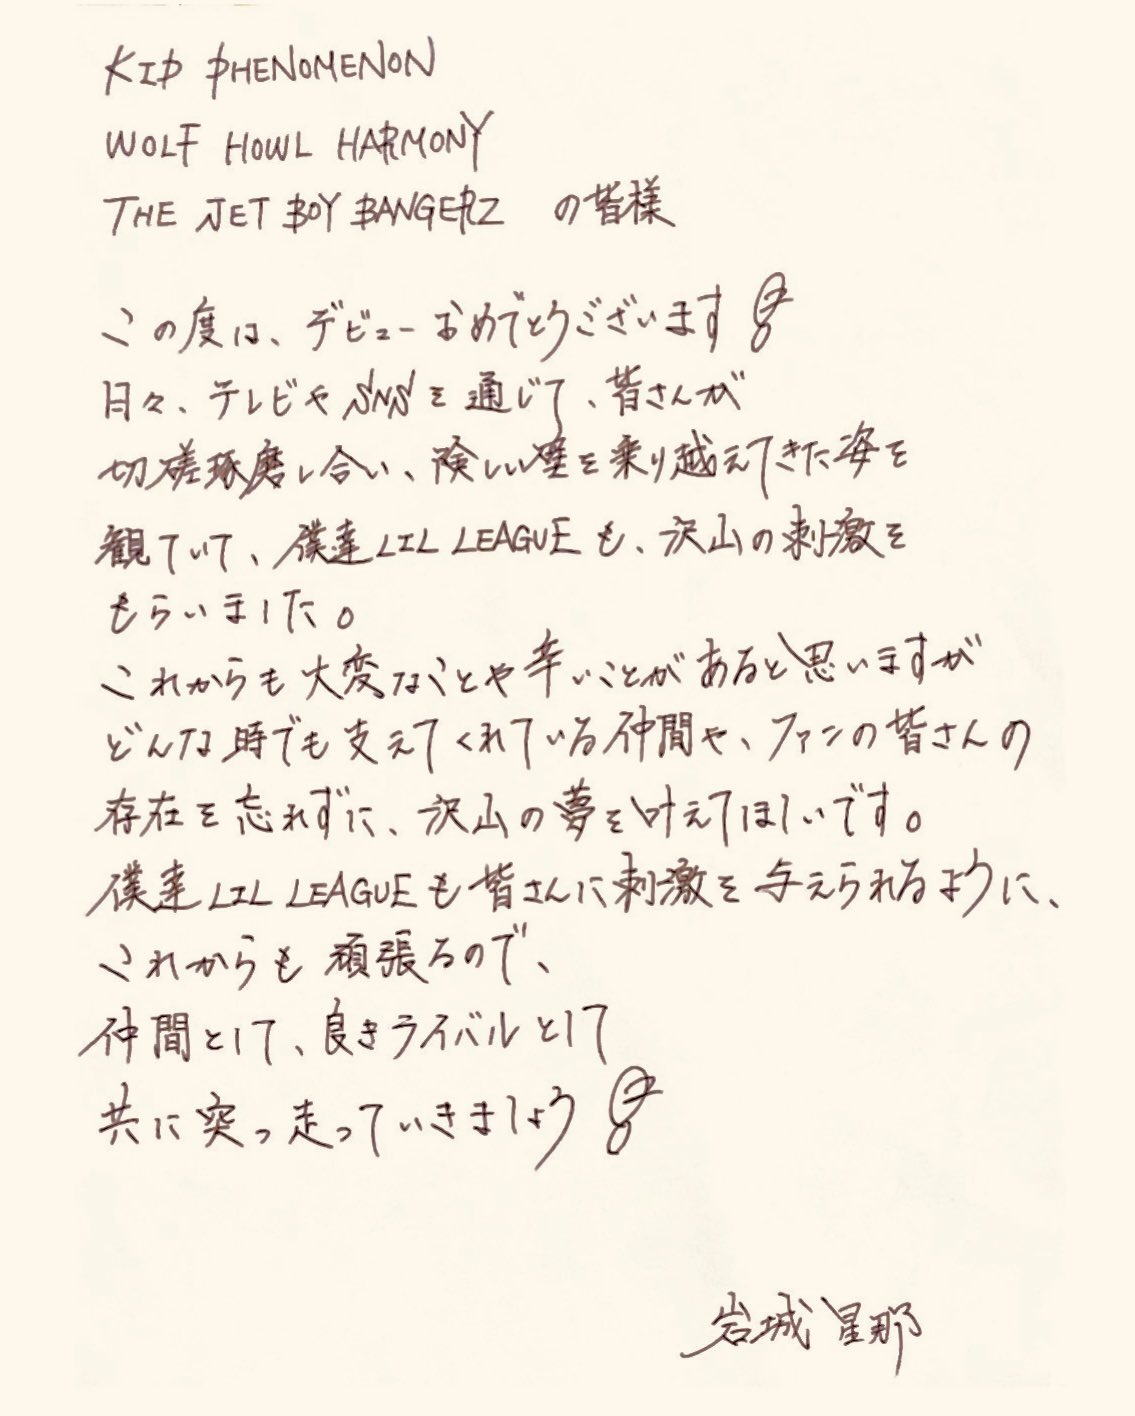 KID PHENOMENON
WOLF HOWL HARMONY
THE JET BOY BANGERZ の皆様
この度は、デビューおめでとうございます!
日々、テレビやSNSを通じて、皆さんが
切磋琢磨し合い、険しい壁を乗り越えてきた姿を
観ていて、僕達LIL LEAGUEも、沢山の刺激を
もらいました。
これからも大変なことや辛いことがあると思いますが
どんな時でも支えてくれている仲間や、ファンの皆さんの
存在を忘れずに、沢山の夢を叶えてほしいです。
僕達LIL LEAGUEも皆さんに刺激を与えられるように、
これからも頑張るので、
仲間として、良きライバルとして
共に突っ走っていきましょう!
岩城星那